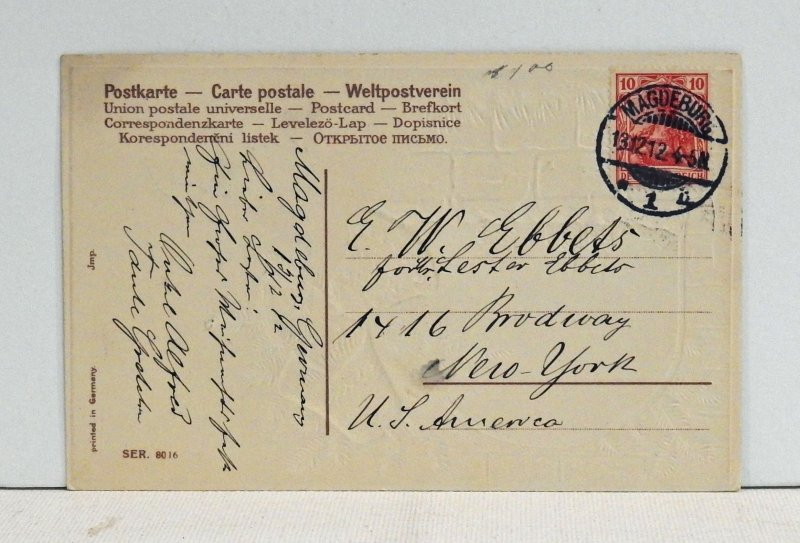 Postkarte — Carte postale — Weltpostverein
Union postale universelle — Postcard — Brefkort
Correspondenzkarte — Levelező-Lap — Dopisnice
Korespondenční listek — Открытое письмо.
10 10
MAGDEBURG
13.12.12.4-5N.
* 1 ü
Magdeburg, Germany
13/12 12
Lieber
Ein frohes Weihnachtsfest
wünschen
Onkel Alfred
+
Tante
E. W. Ebbets
for Mr. Lester Ebbets
1416 Brodway
New-York
U. S. America
Jmp.
printed in Germany.
SER. 8016